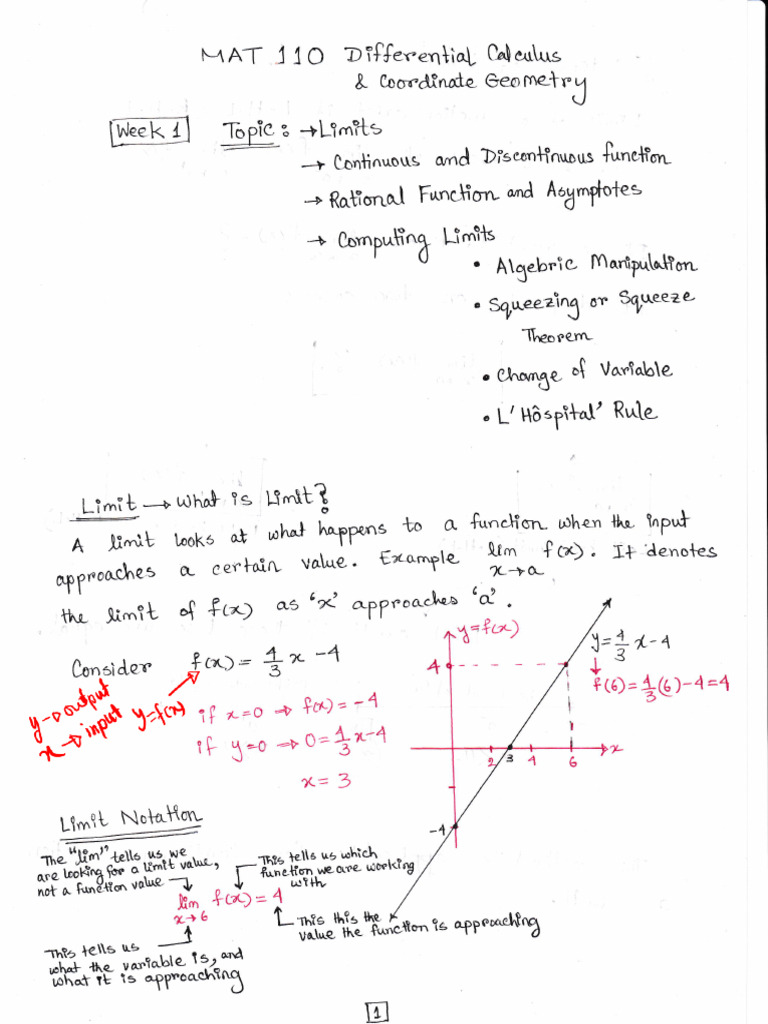 MAT 110 Differential Calculus
& Coordinate Geometry
Week 1 Topic: → Limits
→ Continuous and Discontinuous function
→ Rational Function and Asymptotes
→ Computing Limits
• Algebric Manipulation
• Squeezing or Squeeze
Theorem
• Change of Variable
• L'Hôspital' Rule
Limit → What is Limit?
A limit looks at what happens to a function when the input
approaches a certain value. Example lim x→a f(x). It denotes
the limit of f(x) as 'x' approaches 'a'.
Consider f(x) = 4/3 x - 4
y → output
x → input y=f(x)
if x=0 ⇒ f(x) = -4
if y=0 ⇒ 0 = 4/3 x-4
x = 3
y=f(x)
y = 4/3 x-4
f(6) = 4/3 (6) - 4 = 4
4
2 3 4 6 x
-4
Limit Notation
The "lim" tells us we
are looking for a limit value,
not a function value
This tells us which
function we are working
with
lim x→6 f(x) = 4
This this the
value the function is approaching
This tells us
what the variable is, and
what it is approaching
1